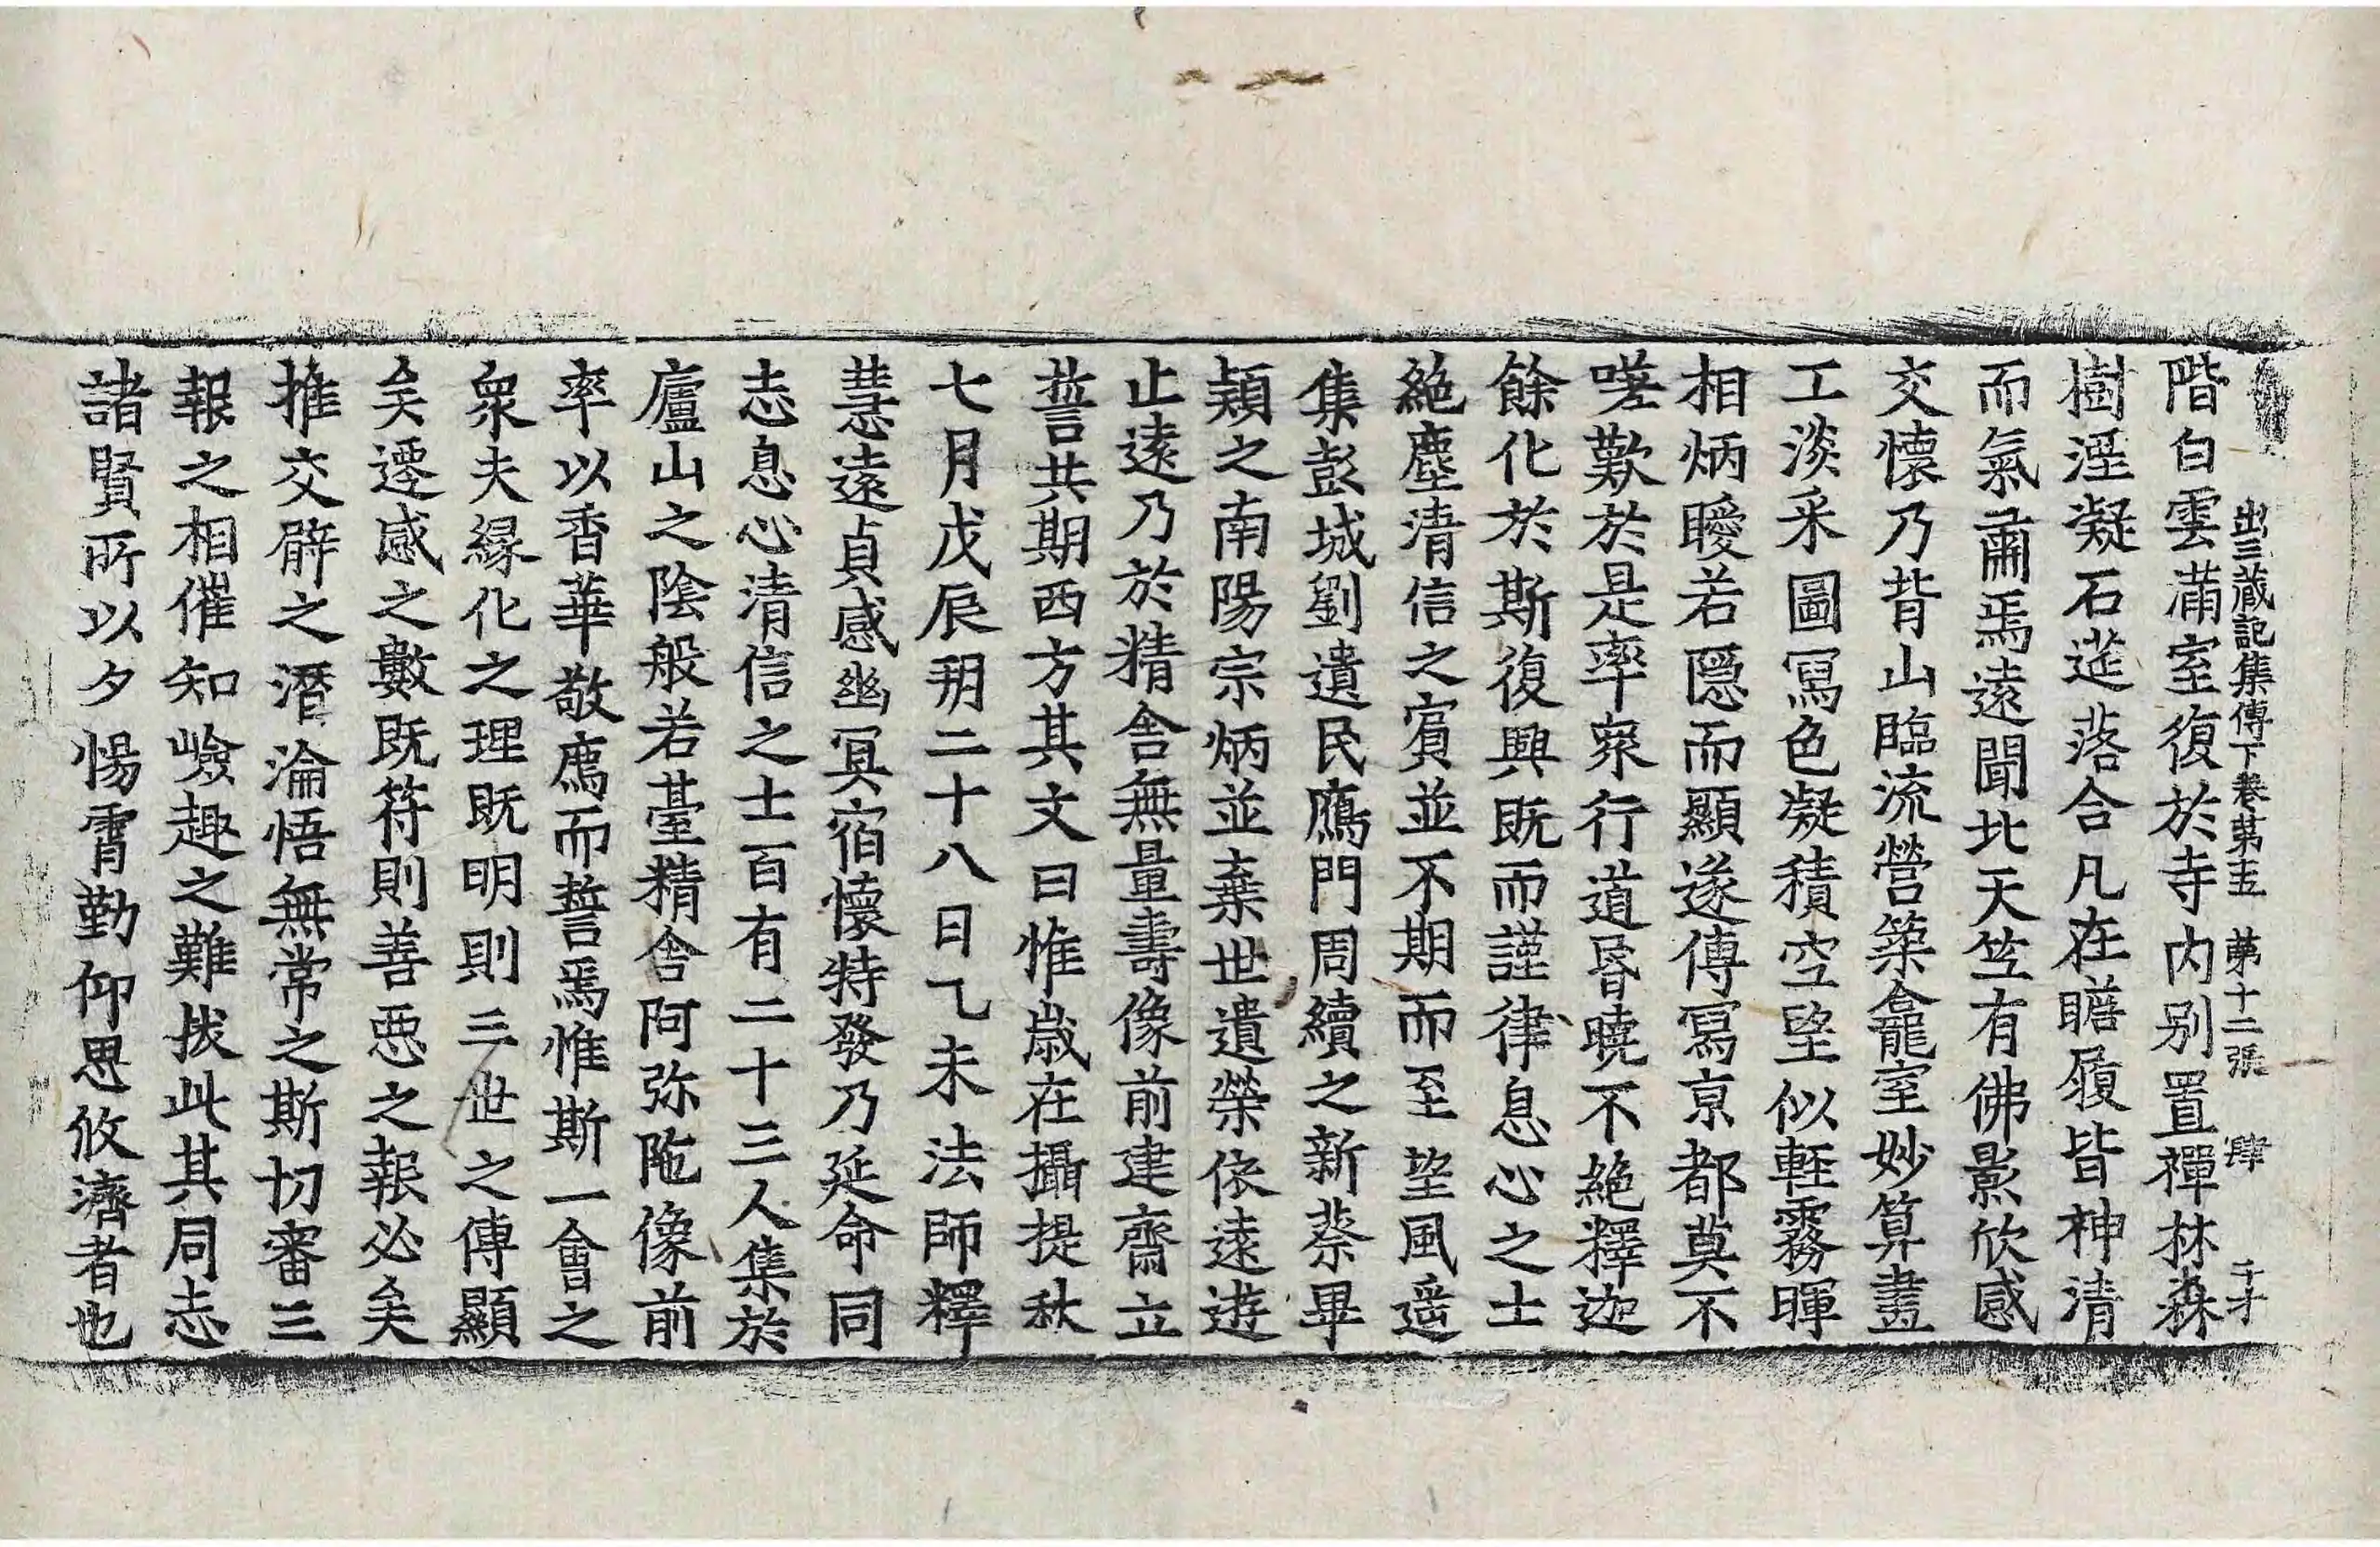 出三藏記集傳下卷第十五 第十二張 肆 千才
階白雲滿室復於寺内别置禪林森
樹煙凝石莚落合凡在瞻履皆神清
而氣肅焉遠聞北天竺有佛影欣感
交懷乃背山臨流營築龕室妙筭畫
工淡采圖寫色凝積空望似輕霧暉
相炳曖若隱而顯遂傳寫京都莫不
嗟歎於是率衆行道昏曉不絶釋迦
餘化於斯復興既而謹律息心之士
絶塵清信之賓並不期而至望風遥
集彭城劉遺民鴈門周續之新蔡畢
穎之南陽宗炳並棄世遺榮依遠遊
止遠乃於精舍無量壽像前建齋立
誓共期西方其文曰惟歲在攝提秋
七月戊辰朔二十八日乙未法師釋
慧遠貞感幽冥宿懷特發乃延命同
志息心清信之士百有二十三人集於
廬山之陰般若臺精舍阿弥陁像前
率以香華敬廌而誓焉惟斯一會之
衆夫緣化之理既明則三世之傳顯
矣遷感之數既符則善惡之報必矣
推交臂之潛淪悟無常之斯切審三
報之相催知嶮趣之難拔此其同志
諸賢所以夕惕霄勤仰思攸濟者也